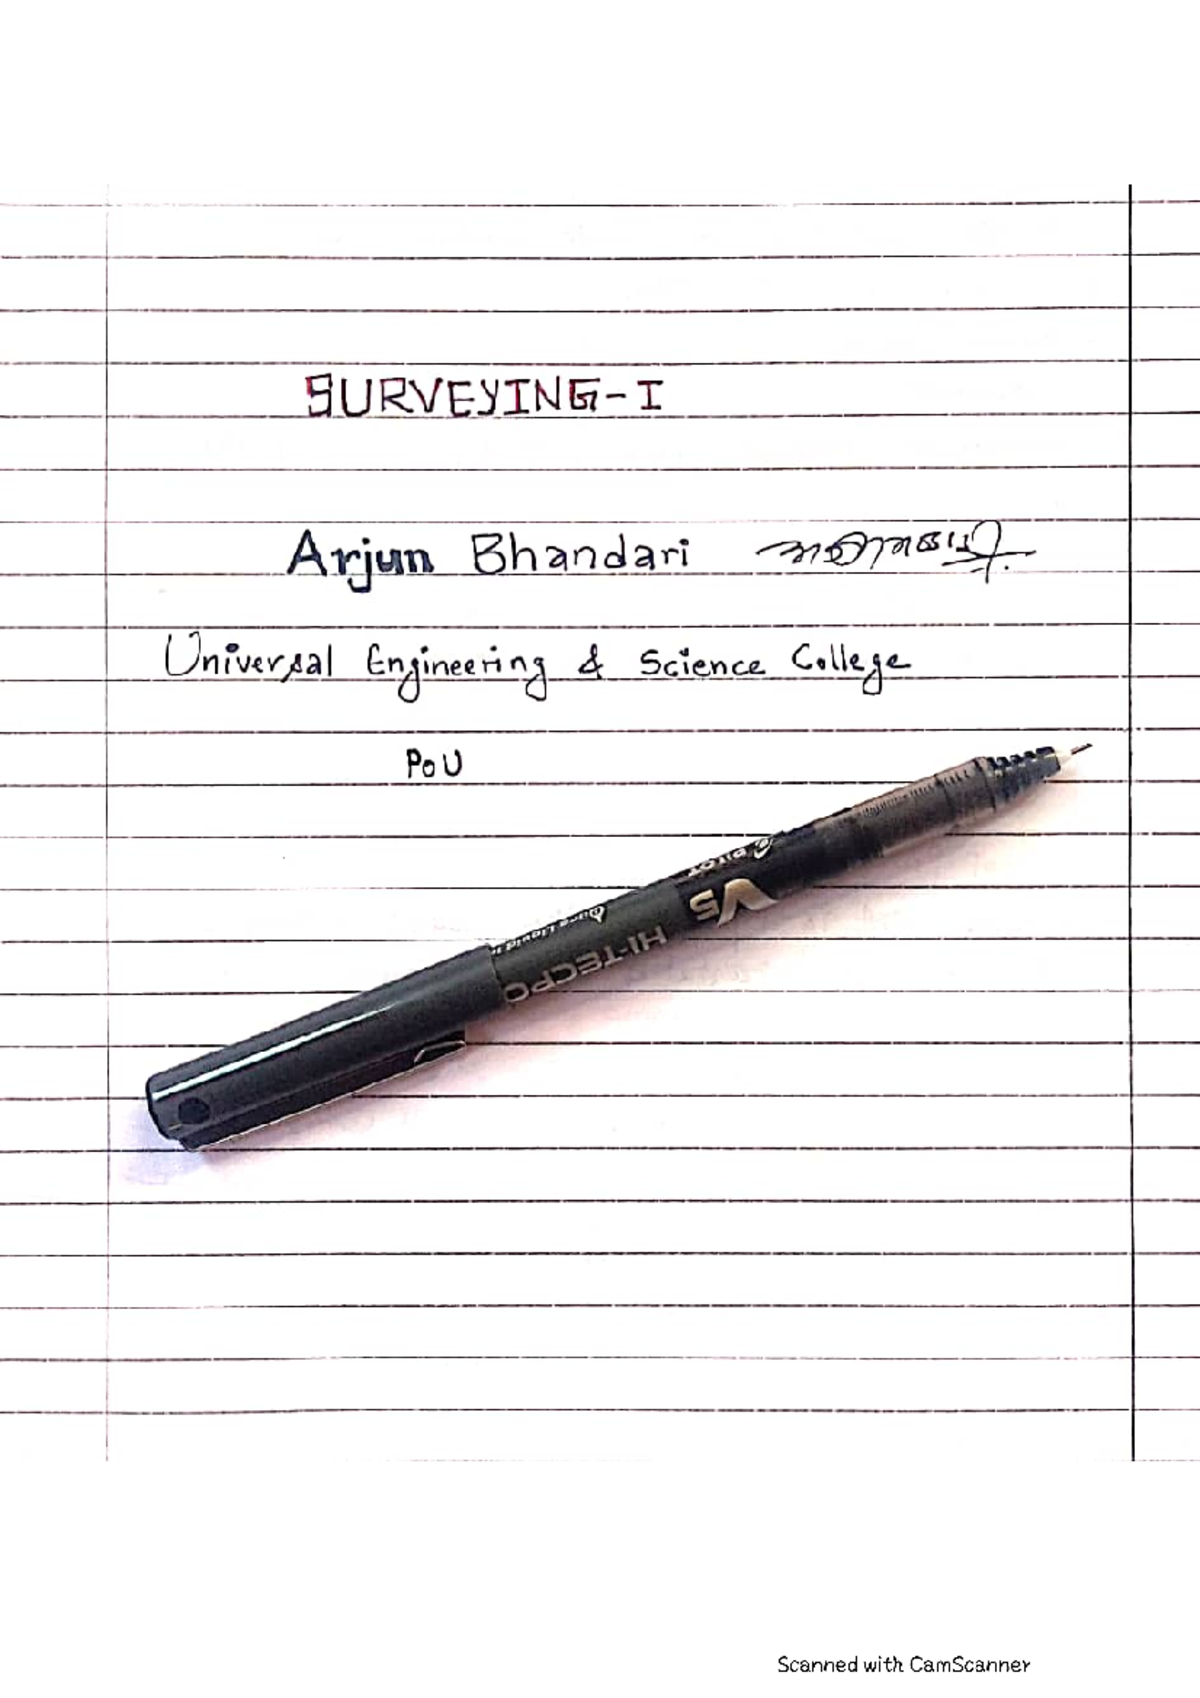 SURVEYING-I
Arjun Bhandari
Universal Engineering & Science College
PoU
PILOT
V5
Pure Liquid
HI-TECPO
Scanned with CamScanner